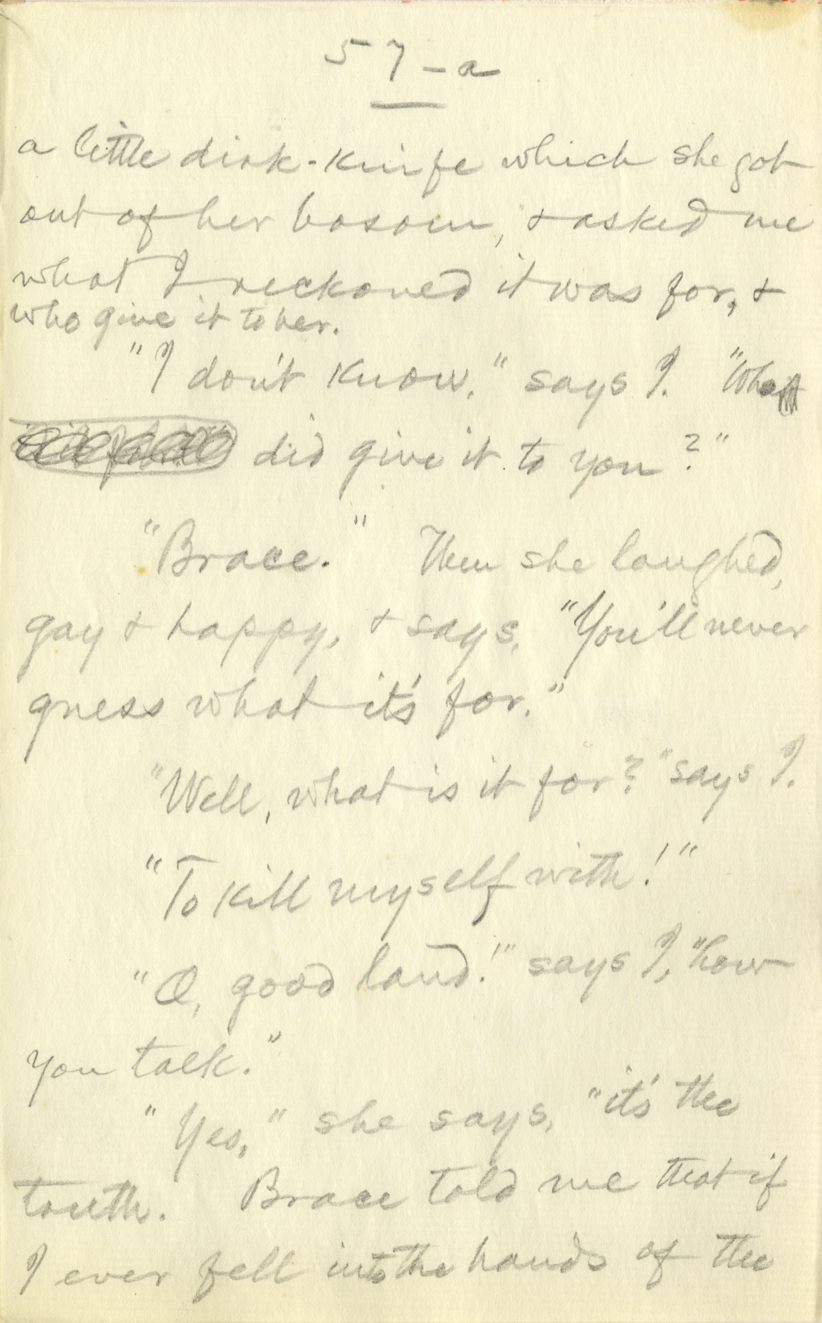 57-a
a little dirk-knife which she got
out of her bosom, & asked me
what I reckoned it was for, &
who give it to her.
"I don't know," says I. "Who
did give it to you?"
"Brace." Then she laughed,
gay & happy, & says, "You'll never
guess what it's for."
"Well, what is it for?" says I.
"To kill myself with!"
"O, good land!" says I, "how
you talk."
"Yes," she says, "it's the
truth. Brace told me that if
I ever fell into the hands of the